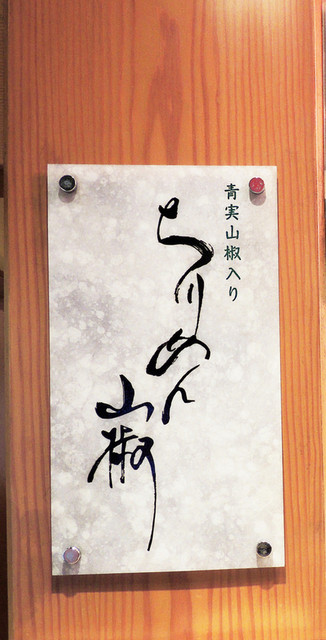 青実山椒入り
ちりめん
山椒